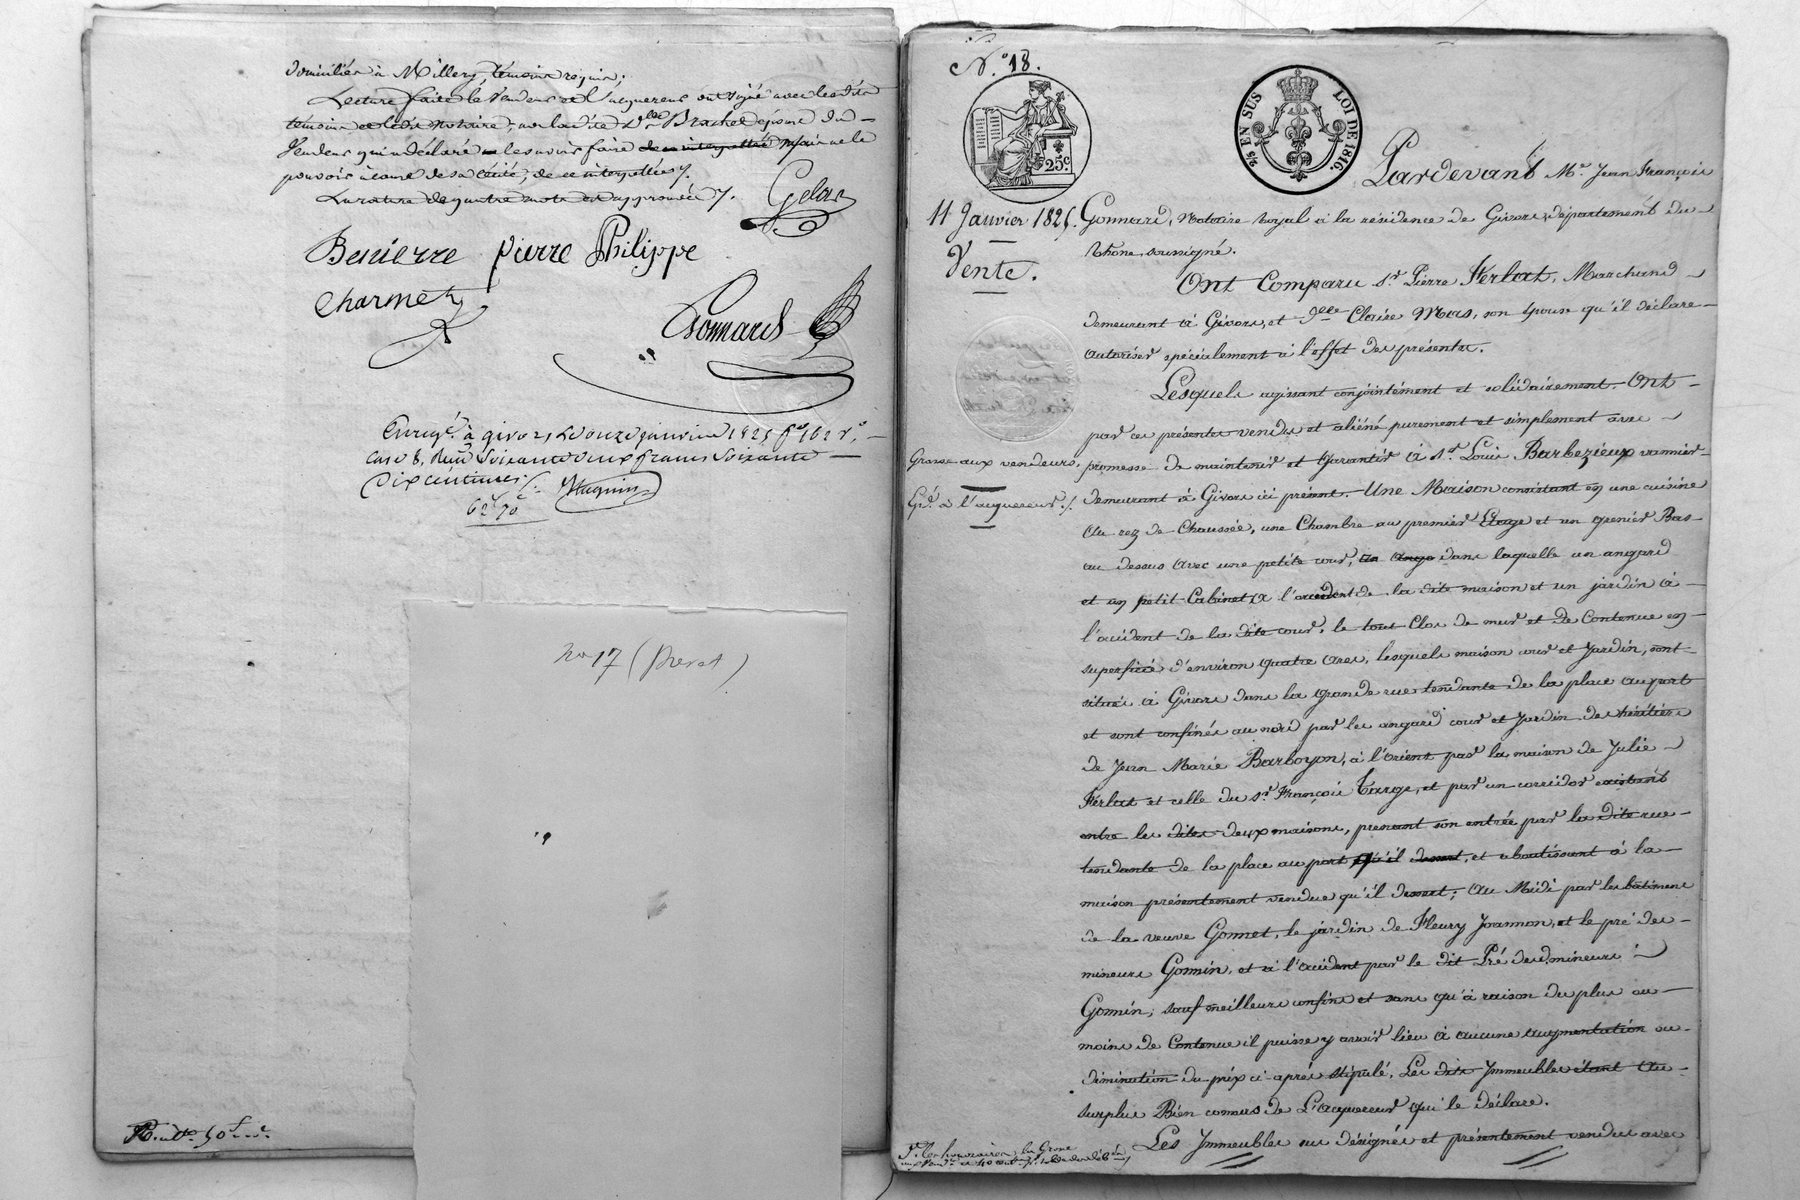 domiciliés à Millery, témoins requis;
Lecture faite le Vendeur et l'acquereur ont signé avec lesdits
témoins et ledit Notaire, non ladite d.lle Brachet épouse du
Vendeur qui a déclaré le savoir faire de ce interpellée mais ne le
pouvoir à cause de sa cécité, de ce interpellée /.
La rature de quatre mots est approuvée /. Gelas
Benierre pierre Philippe
Charmet
Gonnard
Enreg.é à givors le onze janvier 1825 f.o 162 r.o
case 8, Reçu Soixante deux francs Soixante
Dix centimes /. Huguin
62 70
no 17 (Brevet)
N.o 18.
25c.
2/5 EN SUS LOI DE 1816.
Pardevant M.e Jean François
11 Janvier 1825. Gonnard, Notaire royal à la résidence de Givors, département du
Vente. Rhône, soussigné.
Ont Comparu S.r Pierre Ferlat, Marchand
demeurant à Givors, et D.elle Claire Mas, son épouse qu'il déclare
autoriser spécialement à l'effet des présentes.
Lesquels agissant conjointement et solidairement. Ont
par ces présentes vendus et aliéné purement et simplement avec
Grosse aux vendeurs. promesse de maintenir et garantir à S.r Louis Barbezieux vannier
Ex.on à l'acquereur /. demeurant à Givors ici présent. Une Maison consistant en une cuisine
au rez de Chaussée, une Chambre au premier Étage et un grenier Bas
au dessus avec une petite cour, un anga dans laquelle un angard
et un petit Cabinet à l'occident de la dite maison et un jardin à
l'occident de la dite cour, le tout Clos de mur et De Contenue en
superficie d'environ quatre ares, lesquels maison cour et Jardin, sont
situés à Givors dans la grande rue tendante de la place au port
et sont confinés au nord par les angard cour et Jardin des héritiers
de Jean Marie Barboyon, à l'orient par la maison de Julie
Ferlat et celle du S.r François Targe, et par un corridor existant
entre les dites deux maisons, prenant son entrée par la dite rue
tendante de la place au port qu'il dessert, et aboutissant à la
maison présentement vendue qu'il dessert; au Midi par les bâtiments
de la veuve Gonnet, le jardin de Fleury Joannon, et le pré des
mineurs Gonnin, et à l'occident par le dit Pré des d. mineurs
Gonnin, sauf meilleurs confins et sans qu'à raison du plus ou
moins de Contenue il puisse y avoir lieu à aucune augmentation ou
diminution du prix ci-après stipulé. Les dits Immeubles étant au
surplus Bien connus de L'acquereur qui le déclare.
Les Immeubles sus désignés et présentement vendus avec